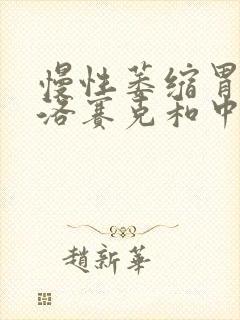 慢性萎缩胃
洛赛克和中
趙新華